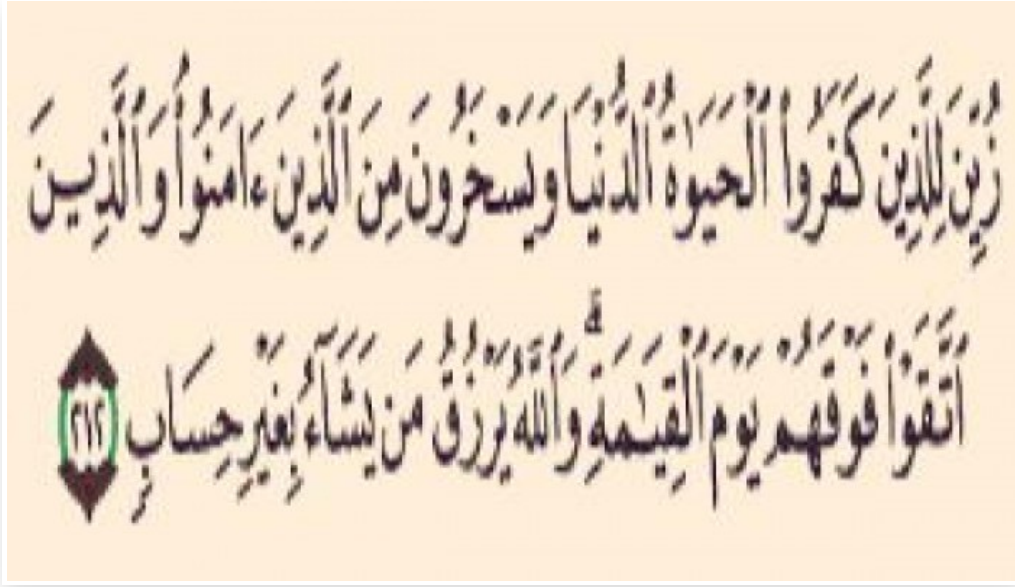 زُيِّنَ لِلَّذِينَ كَفَرُوا۟ ٱلْحَيَوٰةُ ٱلدُّنْيَا وَيَسْخَرُونَ مِنَ ٱلَّذِينَ ءَامَنُوا۟ وَٱلَّذِينَ
ٱتَّقَوْا۟ فَوْقَهُمْ يَوْمَ ٱلْقِيَٰمَةِ ۗ وَٱللَّهُ يَرْزُقُ مَن يَشَآءُ بِغَيْرِ حِسَابٍ ٢١٢